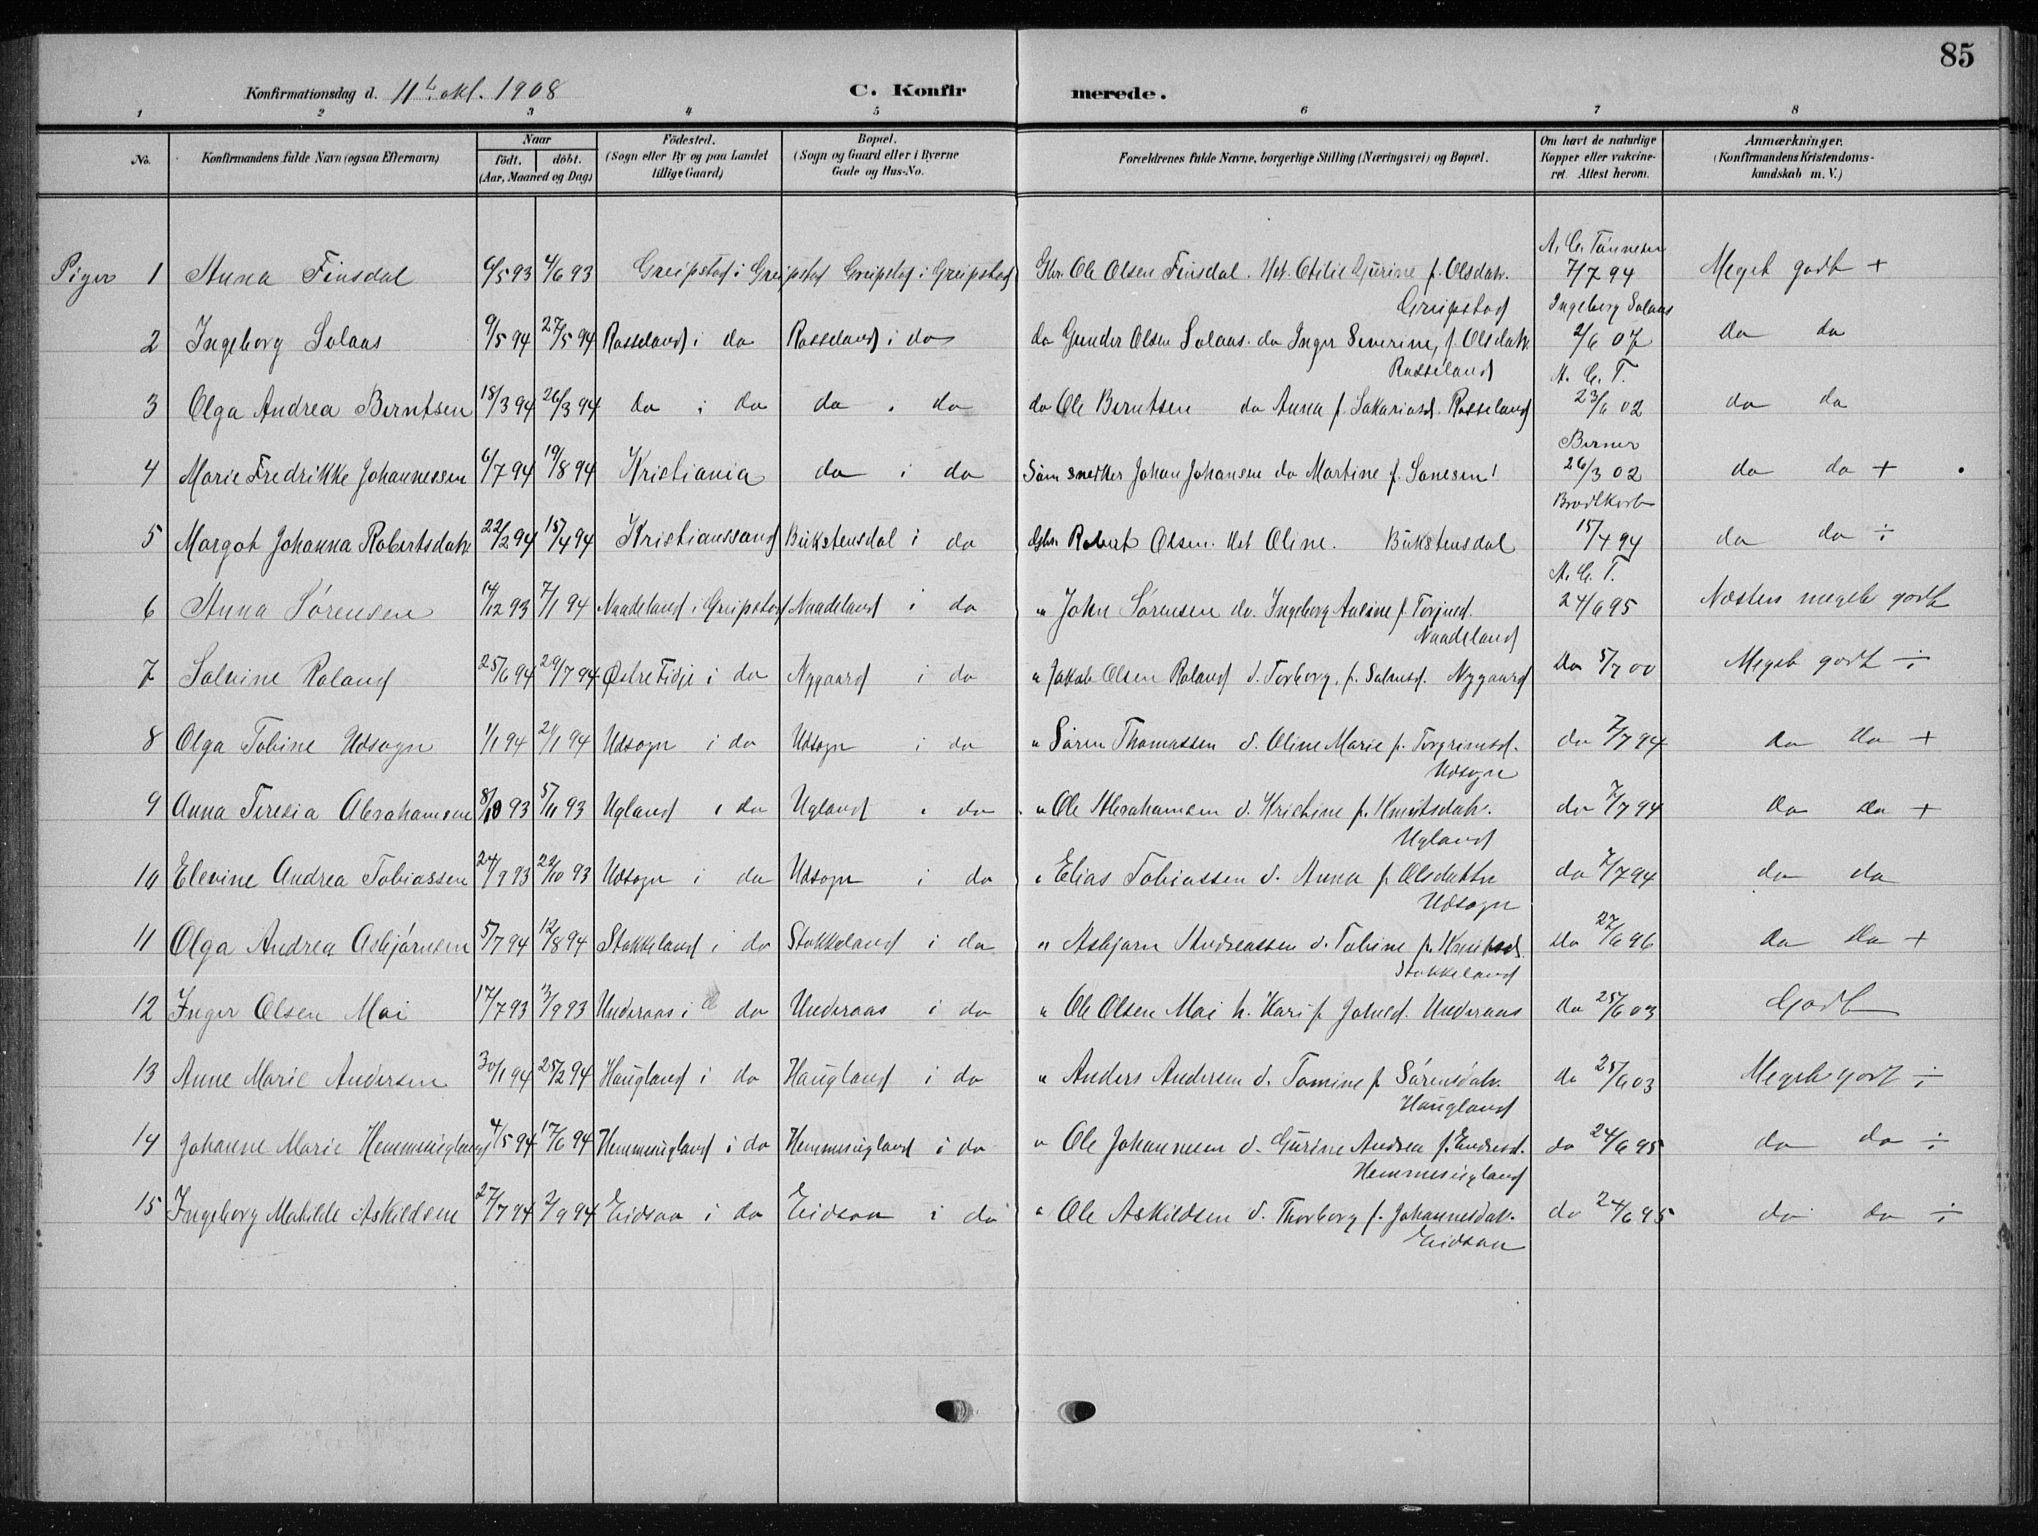 85
Konfirmationsdag d. 11te okt. 1908 C. Konfirmerede.
1 2 3 4 5 6 7 8
No. Konfirmandens fulde Navn (ogsaa Efternavn) Naar födt. döbt. (Aar, Maaned og Dag) Födested. (Sogn eller By og paa Landet tillige Gaard) Bopæl. (Sogn og Gaard eller i Byerne Gade og Hus-No. Forældrenes fulde Navne, borgerlige Stilling (Næringsvei) og Bopæl. Om havt de naturlige Kopper eller vakcineret. Attest herom. Anmærkninger. (Konfirmandens Kristendomskundskab m. V.)
A. G. Tønnesen
Piger 1 Anna Finsdal 6/5 93 4/6 93 Greipstad i Greipstad Greipstad i Greipstad Gbr. Ole Olsen Finsdal. Het. Otilie Gurine f. Olsdatr. 7/7 94 Meget godt +
Greipstad Ingeborg Solaas
2 Ingeborg Solaas 9/5 94 27/5 94 Rosseland i do Rosseland i do do Gunder Olsen Solaas. do Inger Severine, f. Olsdatr. 2/6 07 do do
Rosseland A. G. T.
3 Olga Andrea Berntsen 18/3 94 26/3 94 do i do do i do do Ole Berntsen do Anna f. Sakariasd. Rosseland 23/6 02 do do
Berner
4 Marie Fredrikke Johannessen 6/7 94 19/8 94 Kristiania do i do snedker Johan Johansen do Martine f. 26/3 02 do do +
Brodtkorb
5 Margot Johanna Robertsdatr 22/2 94 15/4 94 Kristianssand Bukstensdal i do Gbr. Robert Olsen. Het Oline. Bukstensdal 15/4 94 do do ÷
A. G. T.
6 Anna Sørensen 14/12 93 7/1 94 Naadeland i Greipstad Naadeland i do " John Sørensen do. Ingeborg f. 24/6 95 Næsten meget godt
Naadeland
7 Salvine Roland 25/6 94 29/7 94 Østre Tidje i do Nygaard i do " Jakob Olsen Roland d. Torborg, f. Salvesd. Nygaard do 5/7 00 Meget godt ÷
8 Olga Tobine Udsogn 1/1 94 21/1 94 Udsogn i do Udsogn i do " Søren Thomassen d. Oline Marie f. Torgrimsd. do 7/7 94 do do +
Udsogn
9 Anna Teresia Abrahamsen 8/10 93 5/11 93 Ugland i do Ugland i do " Ole Abrahamsen d. Kristine f. Knutsdatr. do 7/7 94 do do +
Ugland
10 Elevine Andrea Tobiassen 24/9 93 22/10 93 Udsogn i do Udsogn i do " Elias Tobiassen d. Anna f. Olsdatter do 7/7 94 do do
Udsogn
11 Olga Andrea Asbjørnsen 5/7 94 12/8 94 Stokkeland i do Stokkeland i do " Asbjørn Andreassen d. Tobine f. Knutsd. do 27/6 96 do do +
Stokkeland
12 Inger Olsen Moi 17/7 93 3/9 93 Underaas i do Underaas i do " Ole Olsen Moi h. Kari f. Johnsd. Underaas do 25/6 03 Godt
13 Anne Marie Andersen 30/1 94 25/2 94 Haugland i do Haugland i do " Anders Andersen d. Tomine f Sørensdatr. do 25/6 03 Meget godt ÷
Haugland
14 Johanne Marie Hemmingland 4/5 94 17/6 94 Hemmingland i do Hemmingland i do " Ole Johannesen d. Gurine Andrea f. Endresd. do 24/6 95 do do ÷
Hemmingland
15 Ingeborg Mathilde Askildsen 27/7 94 2/9 94 Eidsaa i do Eidsaa i do " Ole Askildsen d. Thorborg f. Johannesdatr. do 24/6 95 do do ÷
Eidsaa